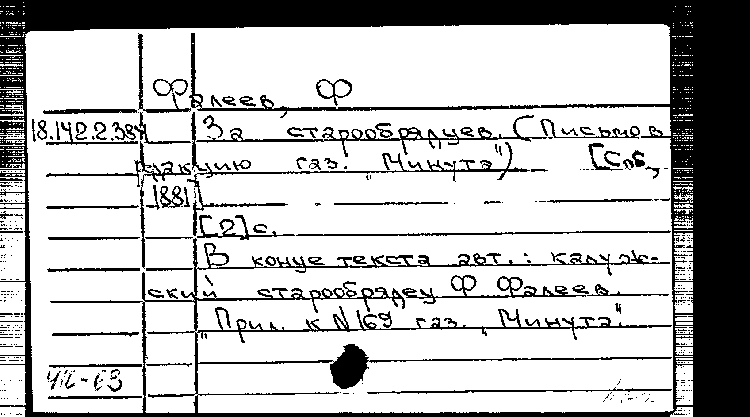 Фалеев, Ф
18.142.2.384 За старообрядцев. (Письмо в
редакцию газ. "Минута") [Спб.,
1881]
[2] с.
В конце текста авт.: калуж-
ский старообрядец Ф Фалеев.
"Прил. к N 169 газ. "Минута".